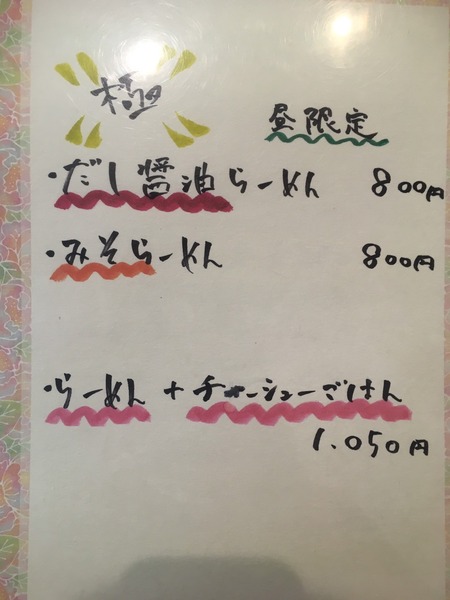 極
昼限定
・だし醤油らーめん 800円
・みそらーめん 800円
・らーめん + チャーシューごはん
1.050円